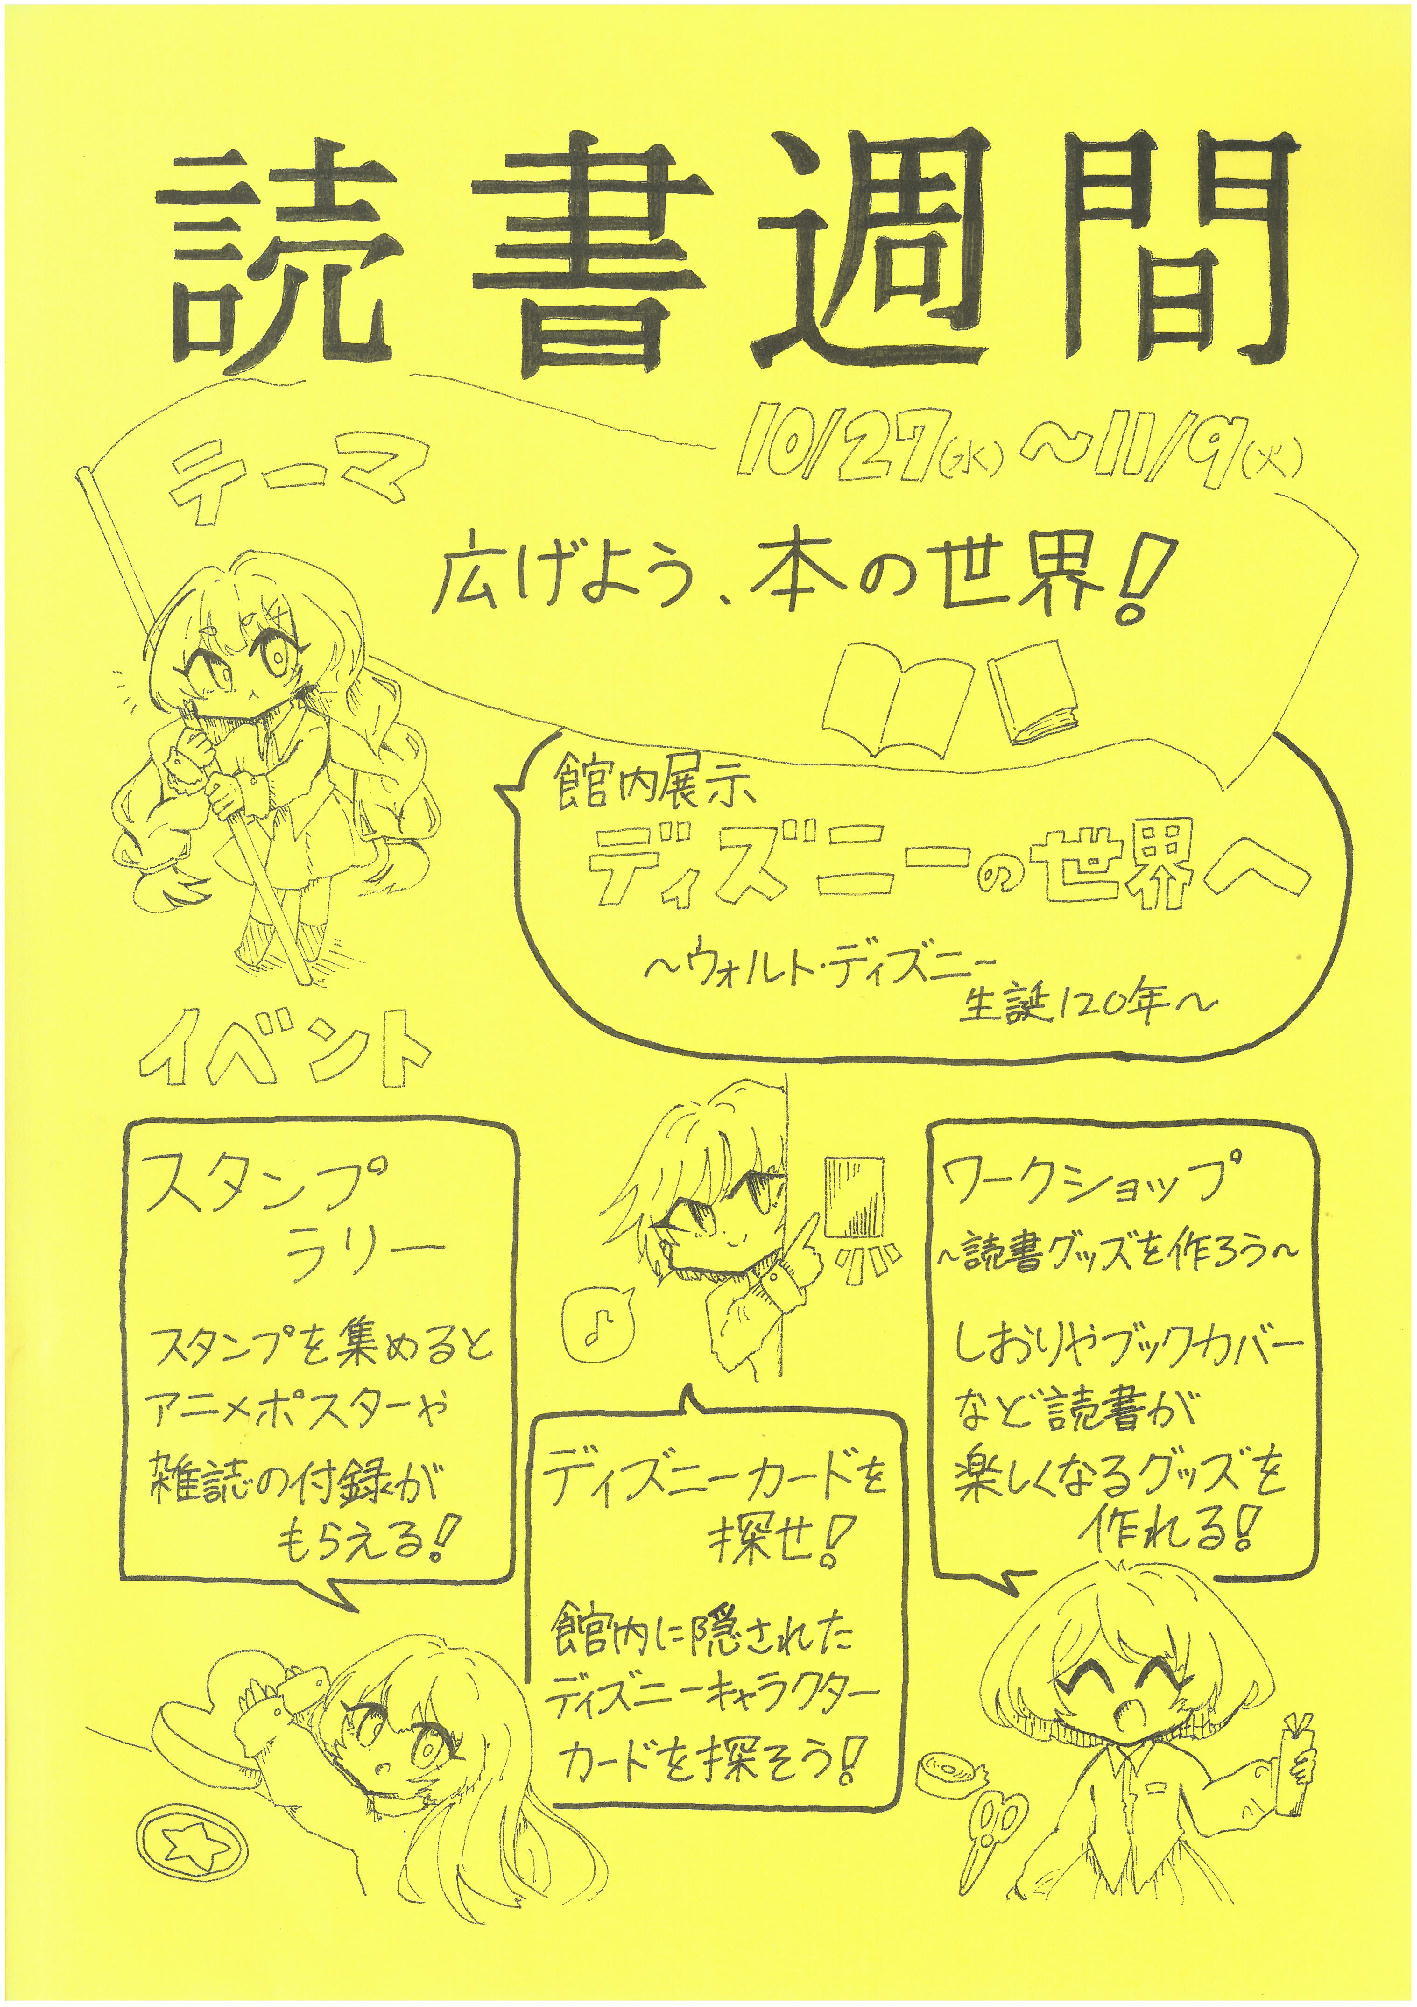 読書週間
10/27(水)～11/9(火)
テーマ
広げよう、本の世界！
館内展示
ディズニーの世界へ
～ウォルト・ディズニー
生誕120年～
イベント
スタンプ
ラリー
スタンプを集めると
アニメポスターや
雑誌の付録が
もらえる！
ディズニーカードを
探せ！
館内に隠された
ディズニーキャラクター
カードを探そう！
ワークショップ
～読書グッズを作ろう～
しおりやブックカバー
など読書が
楽しくなるグッズを
作れる！